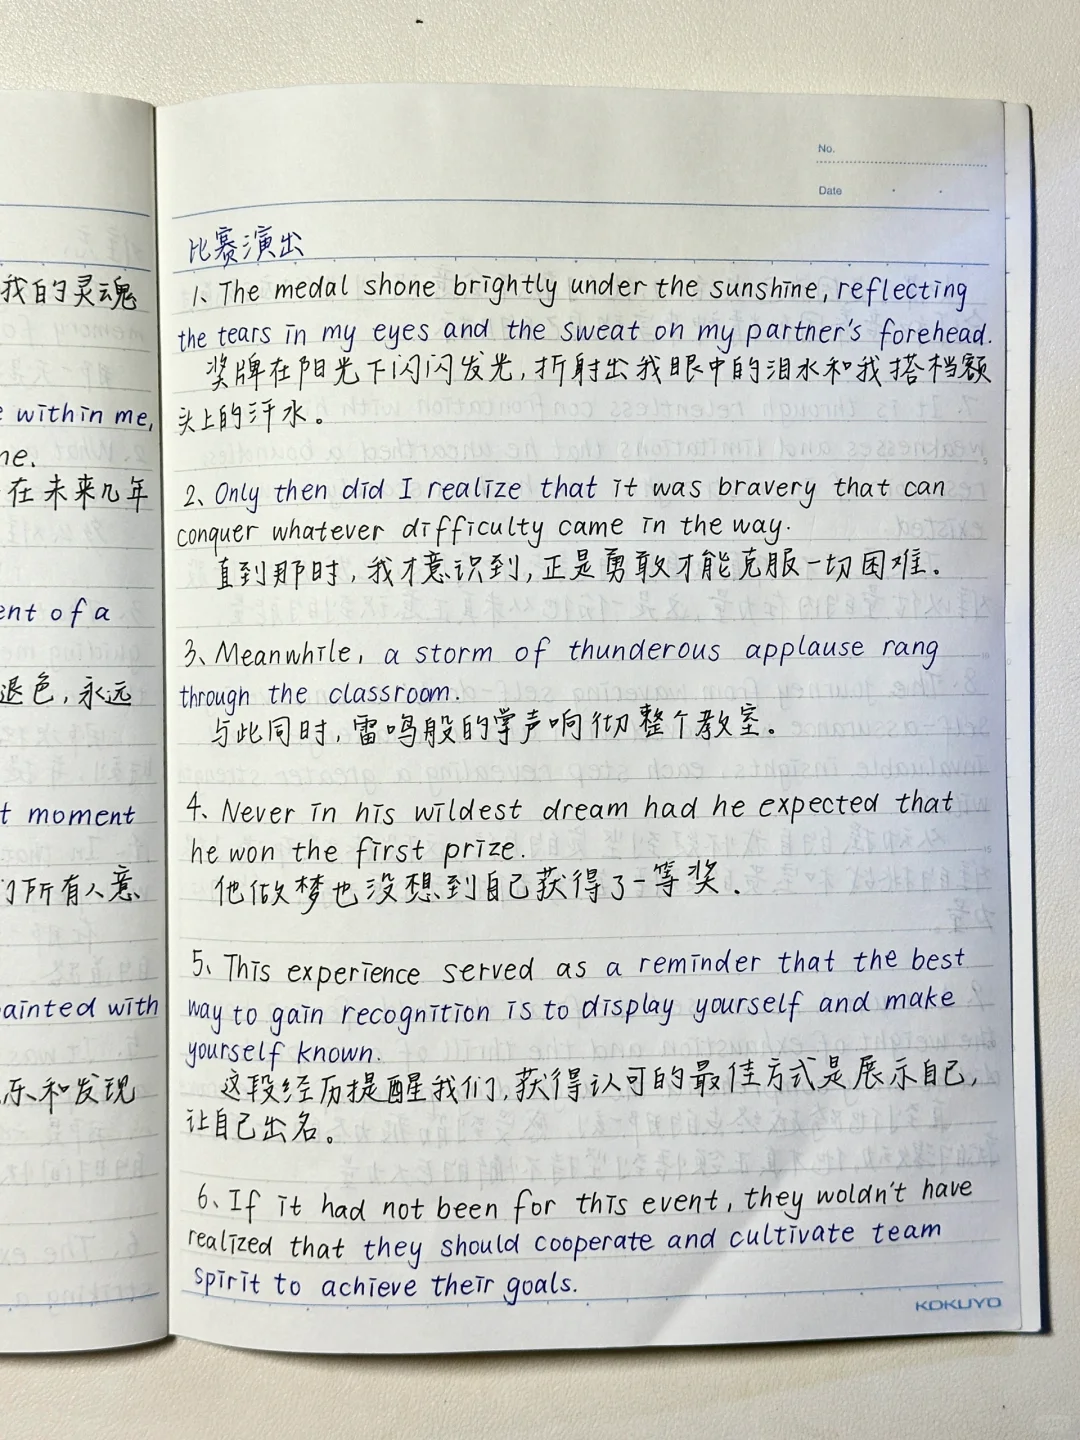 我的灵魂
within me,
在未来几年
ent of a
退色，永远
t moment
门所有人意
ainted with
乐和发现
No.
Date
比赛演出
1、The medal shone brightly under the sunshine, reflecting
the tears in my eyes and the sweat on my partner's forehead.
奖牌在阳光下闪闪发光，折射出我眼中的泪水和我搭档额
头上的汗水。
2、Only then did I realize that it was bravery that can
conquer whatever difficulty came in the way.
直到那时，我才意识到，正是勇敢才能克服一切困难。
3、Meanwhile, a storm of thunderous applause rang
through the classroom.
与此同时，雷鸣般的掌声响彻整个教室。
4、Never in his wildest dream had he expected that
he won the first prize.
他做梦也没想到自己获得了一等奖.
5、This experience served as a reminder that the best
way to gain recognition is to display yourself and make
yourself known.
这段经历提醒我们，获得认可的最佳方式是展示自己，
让自己出名。
6、If it had not been for this event, they woldn't have
realized that they should cooperate and cultivate team
spirit to achieve their goals.
KOKUYO